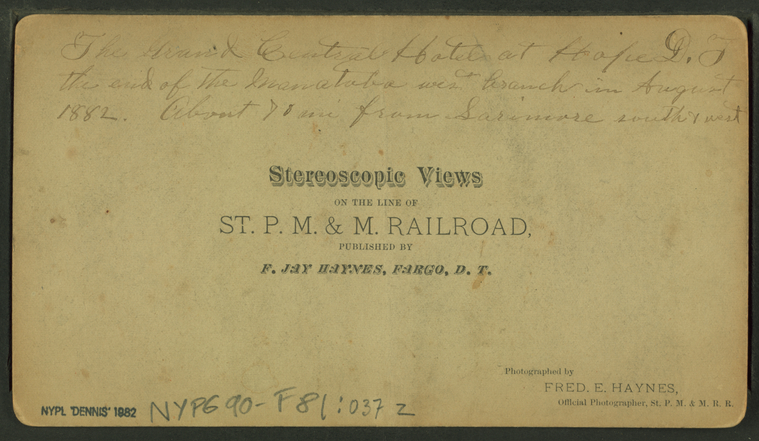 The Grand Central Hotel at Hope D. T
the end of the Manatoba west branch in August
1882. About 70 mi from Larimore south & west
Stereoscopic Views
ON THE LINE OF
ST. P. M. & M. RAILROAD,
PUBLISHED BY
F. JAY HAYNES, FARGO, D. T.
Photographed by
FRED. E. HAYNES,
Official Photographer, St. P. M. & M. R. R.
NYPL 'DENNIS' 1982 NYPG 90-F81:037 Z